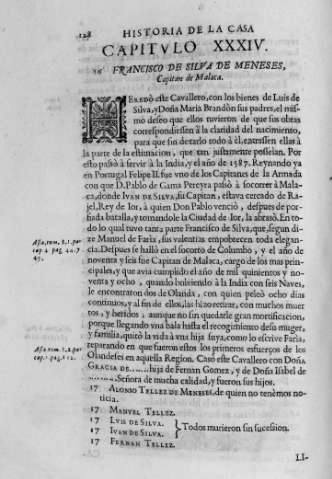 128
HISTORIA DE LA CASA
CAPITVLO XXXIV.
16 FRANCISCO DE SILVA DE MENESES,
Capitan de Malaca.
EREDÒ este Cavallero, con los bienes de Luis de
Silva, y Doña Maria Brandòn sus padres, el mismo
deseo que ellos tuvieron de que sus obras
correspondiessen à la claridad del nacimiento,
para que sin deverlo todo à èl, entrassen ellas à
la parte de la estimacion, que tan justamente posseìan. Por
esto passò à servir à la India, y el año de 1587. Reynando ya
en Portugal Felipe II. fue vno de los Capitanes de la Armada
con que D. Pablo de Gama Pereyra passò à socorrer à Malaca,
donde IVAN DE SILVA, su Capitan, estava cercado de Rajel,
Rey de Ior, à quien Don Pablo venciò, despues de porfiada
batalla, y tomandole la Ciudad de Ior, la abrasò. En todo
lo qual tuvo tanta parte Francisco de Silva, que, segun dize
Manuel de Faria, sus valentias empobrecen toda elegancia.
Despues se hallò en el socorro de Columbo, y el año de
noventa y seis fue Capitan de Malaca, cargo de los mas principales,
y que avia cumplido el año de mil quinientos y noventa
y ocho, quando bolviendo à la India con seis Naves,
le encontraron dos de Olanda, con quien peleò ocho dias
continuos, y al fin de ellos, las hizo retirar, con muchos muertos,
y heridos, aunque no sin quedarle gran mortificacion,
porque llegando vna bala hasta el recogimiento de su muger,
y familia, quitò la vida à vna hija suya, como lo escrive Faria,
reparando en que fueron estos los primeros esfuerços de los
Olandeses en aquella Region. Casò este Cavallero con DOÑA
GRACIA DE ...... hija de Fernan Gomez, y de Doña Isabel de
........ Señora de mucha calidad, y fueron sus hijos.
17 ALONSO TELLEZ DE MENESES, de quien no tenèmos noticia.
17 MANVEL TELLEZ.
17 LVIS DE SILVA.
17 IVAN DE SILVA.
17 FERNAN TELLEZ.
} Todos murieron sin sucession.
LI-